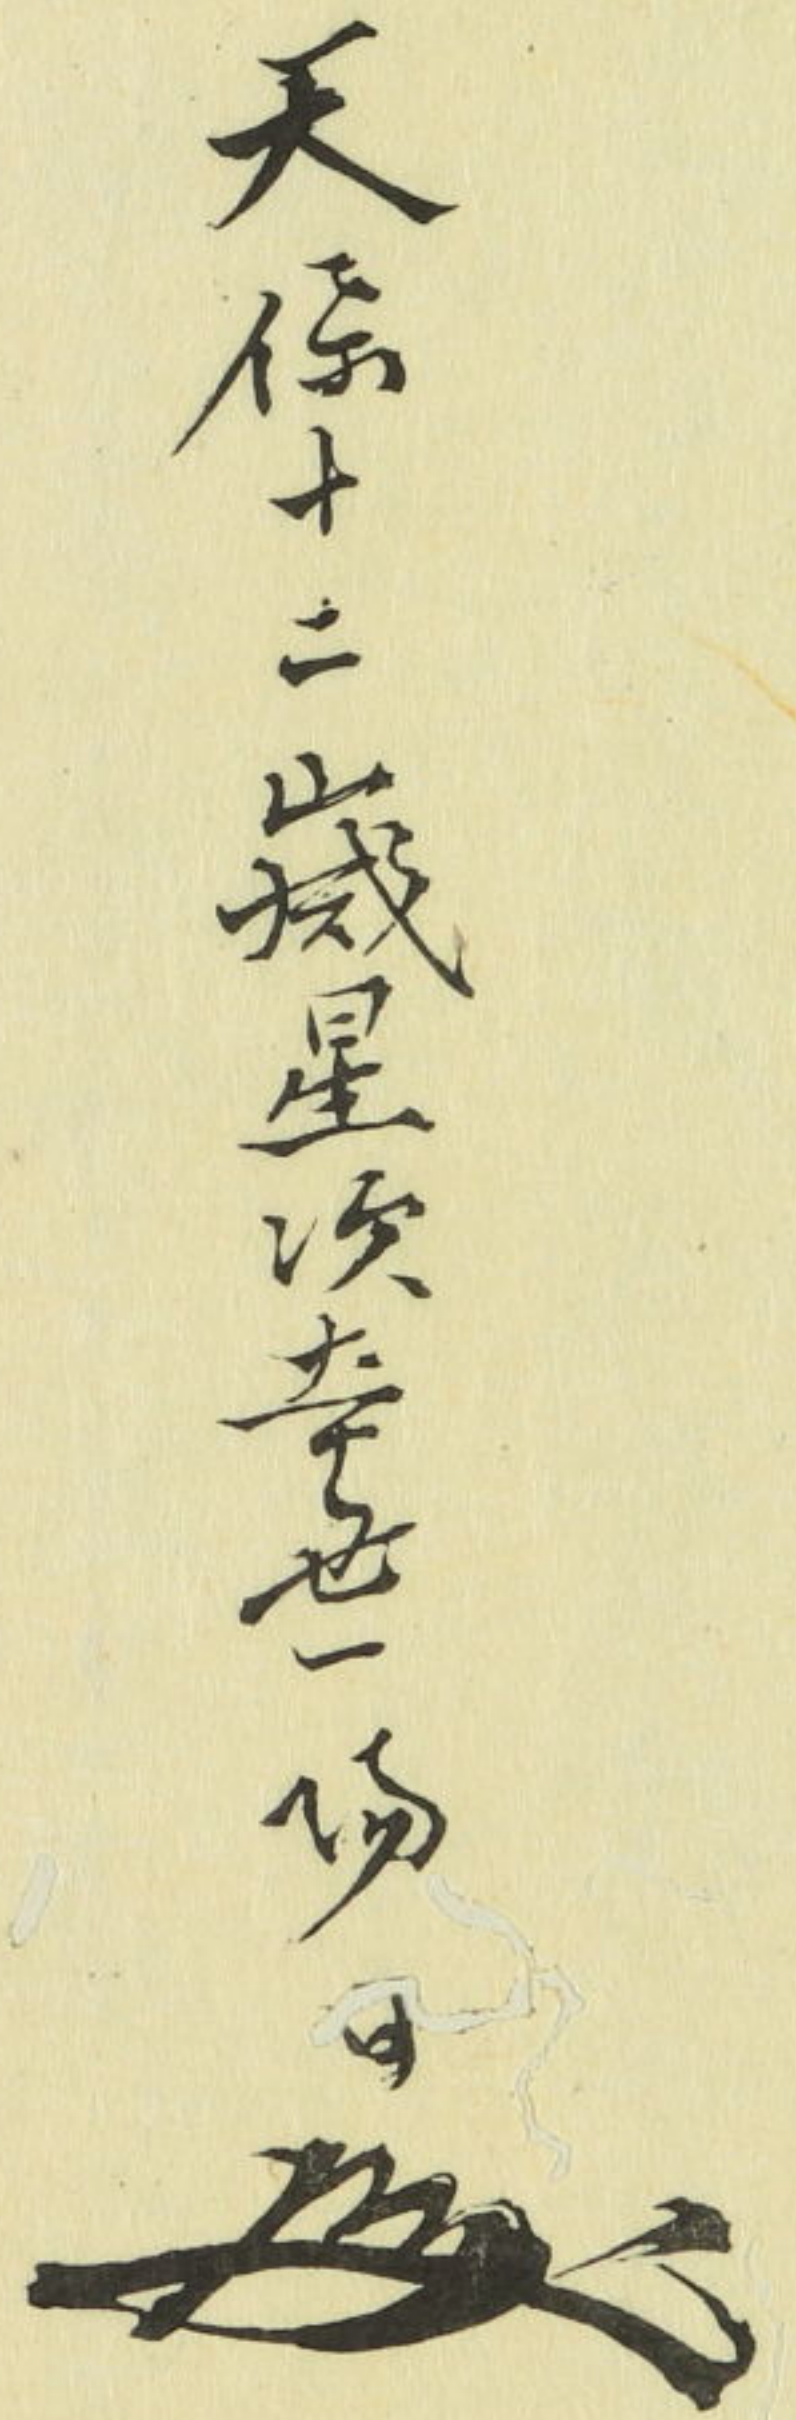 天保十二歳星次辛丑一陽日